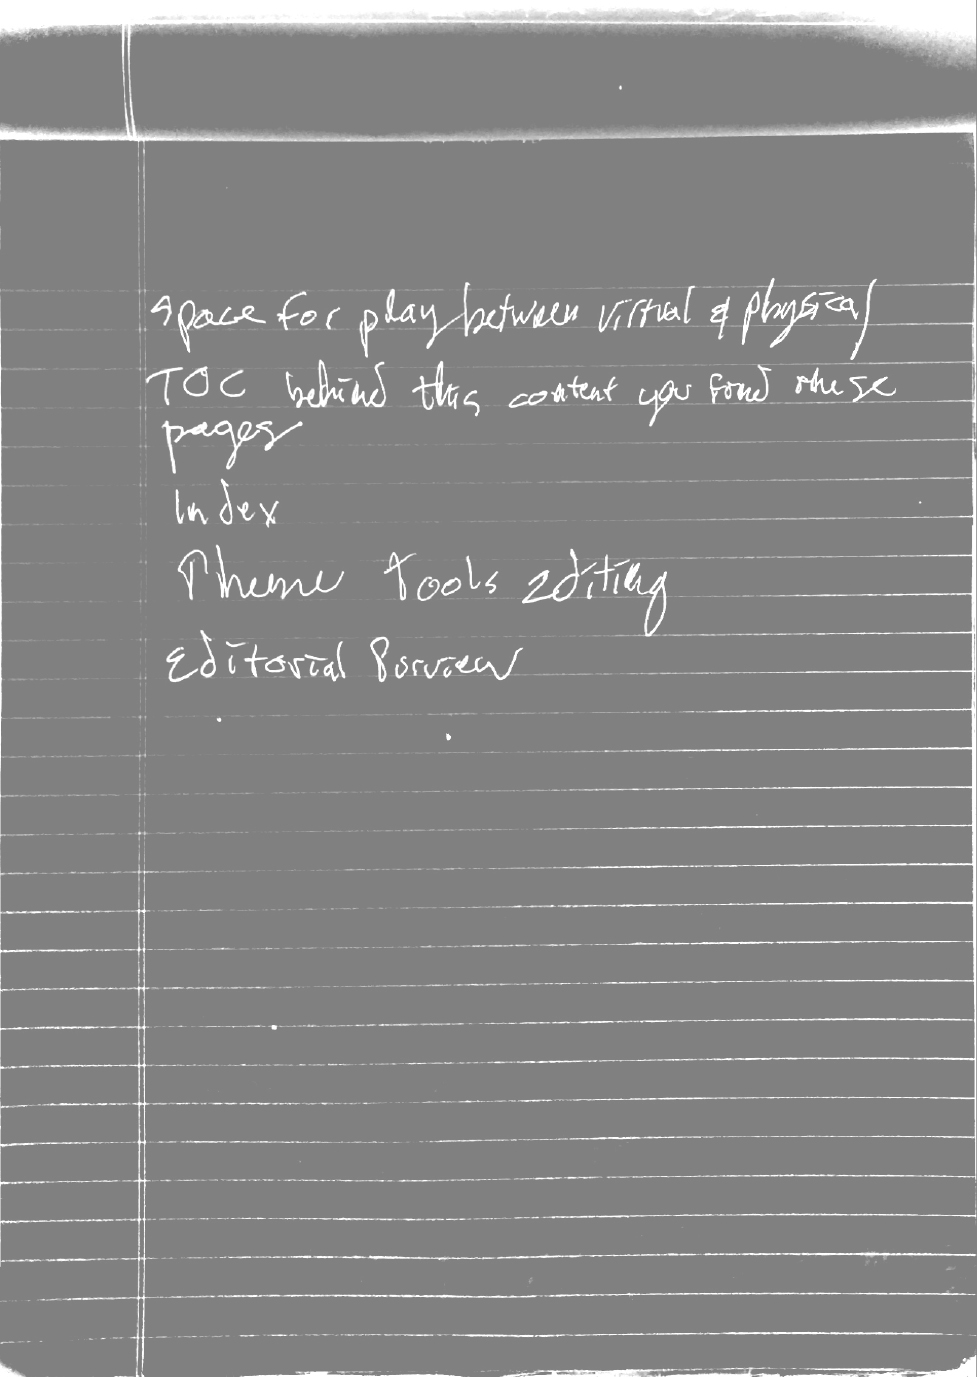 space for play between virtual & physical
TOC behind this content you fond these
pages
Index
Theme tools editing
Editorial Purview